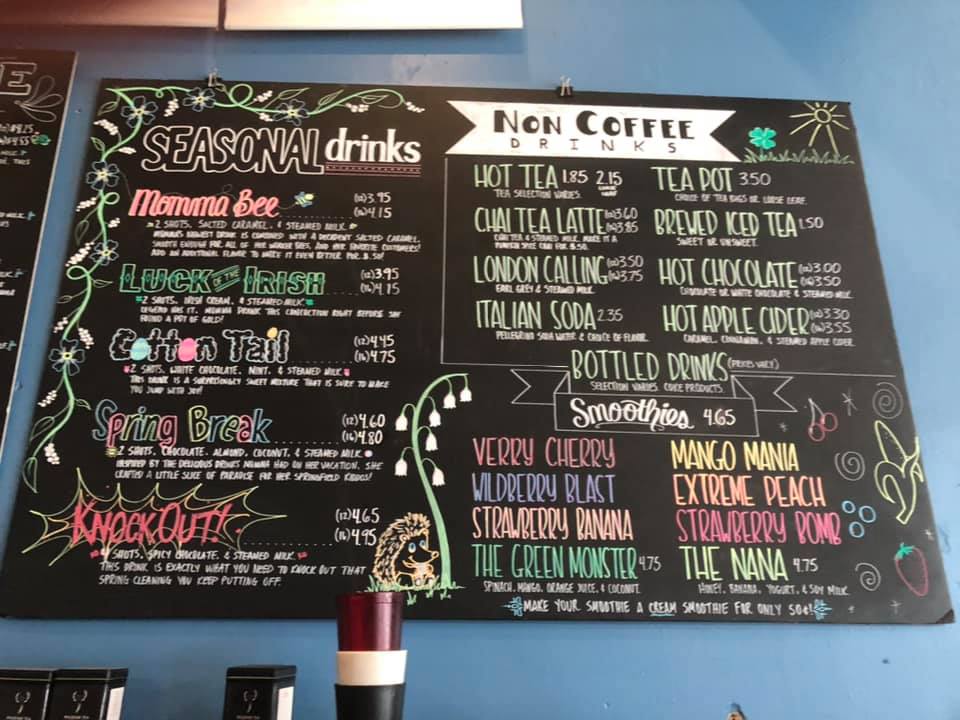 SEASONAL drinks
Momma Bee (12)3.95
(16)4.15
2 SHOTS, SALTED CARAMEL, & STEAMED MILK.
MOMMA'S NEWEST DRINK IS COMBINED WITH A DECADENT SALTED CARAMEL,
SMOOTH ENOUGH FOR ALL OF HER WORKER BEES, AND HER FAVORITE CUSTOMERS!
ADD AN ADDITIONAL FLAVOR TO MAKE IT EVEN BETTER FOR $.50!
LUCK OF THE IRISH (12)3.95
(16)4.15
2 SHOTS, IRISH CREAM, & STEAMED MILK
LEGEND HAS IT, MOMMA DRANK THIS CONCOCTION RIGHT BEFORE SHE
FOUND A POT OF GOLD!
Cotton Tail (12)4.45
(16)4.75
2 SHOTS, WHITE CHOCOLATE, MINT, & STEAMED MILK
THIS DRINK IS A SURPRISINGLY SWEET MIXTURE THAT IS SURE TO MAKE
YOU JUMP WITH JOY!
Spring Break (12)4.60
(16)4.80
2 SHOTS, CHOCOLATE, ALMOND, COCONUT, & STEAMED MILK
INSPIRED BY THE DELICIOUS DRINKS MOMMA HAD ON HER VACATION, SHE
CRAFTED A LITTLE SLICE OF PARADISE FOR HER SPRINGFIELD KIDDOS!
KNOCKOUT! (12)4.65
(16)4.95
4 SHOTS, SPICY CHOCOLATE, & STEAMED MILK
THIS DRINK IS EXACTLY WHAT YOU NEED TO KNOCK OUT THAT
SPRING CLEANING YOU KEEP PUTTING OFF.
NON COFFEE
DRINKS
HOT TEA 1.85 2.15
TEA SELECTION VARIES.
CHAI TEA LATTE (12)3.60
(16)3.85
CHAI TEA & STEAMED MILK. MAKE IT A
PUMPKIN SPICE CHAI FOR $.50.
LONDON CALLING (12)3.50
(16)3.75
EARL GREY & STEAMED MILK.
ITALIAN SODA 2.35
PELLEGRINO SODA WATER & CHOICE OF FLAVOR.
TEA POT 3.50
CHOICE OF TEA BAGS OR LOOSE LEAF.
BREWED ICED TEA 1.50
SWEET OR UNSWEET.
HOT CHOCOLATE (12)3.00
(16)3.50
CHOCOLATE OR WHITE CHOCOLATE & STEAMED MILK.
HOT APPLE CIDER (12)3.30
(16)3.55
CARAMEL, CINNAMON, & STEAMED APPLE CIDER.
BOTTLED DRINKS (PRICES VARY)
SELECTION VARIES. COKE PRODUCTS.
Smoothies 4.65
VERRY CHERRY
WILDBERRY BLAST
STRAWBERRY BANANA
THE GREEN MONSTER 4.75
SPINACH, MANGO, ORANGE JUICE, & COCONUT.
MANGO MANIA
EXTREME PEACH
STRAWBERRY BOMB
THE NANA 4.75
HONEY, BANANA, YOGURT, & SOY MILK.
MAKE YOUR SMOOTHIE A CREAM SMOOTHIE FOR ONLY 50¢!